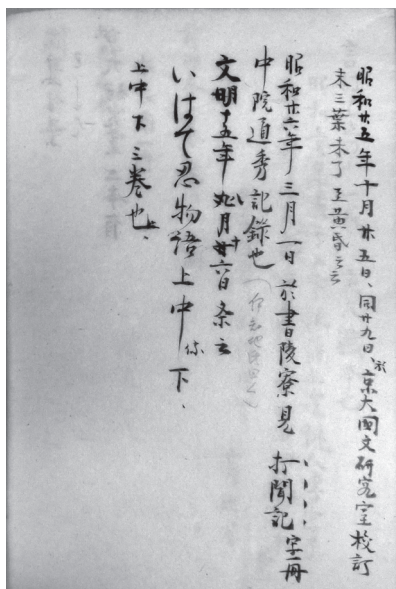 昭和廿五年十月廿五日、同廿九日、於京大國文研究室校訂
末三葉未了至黄昏云云
昭和廿六年三月一日於書陵寮見打聞記
中院通秀記錄也
文明十五年 月十六日条云
いはて忍物語上中下、
上中下三巻也、